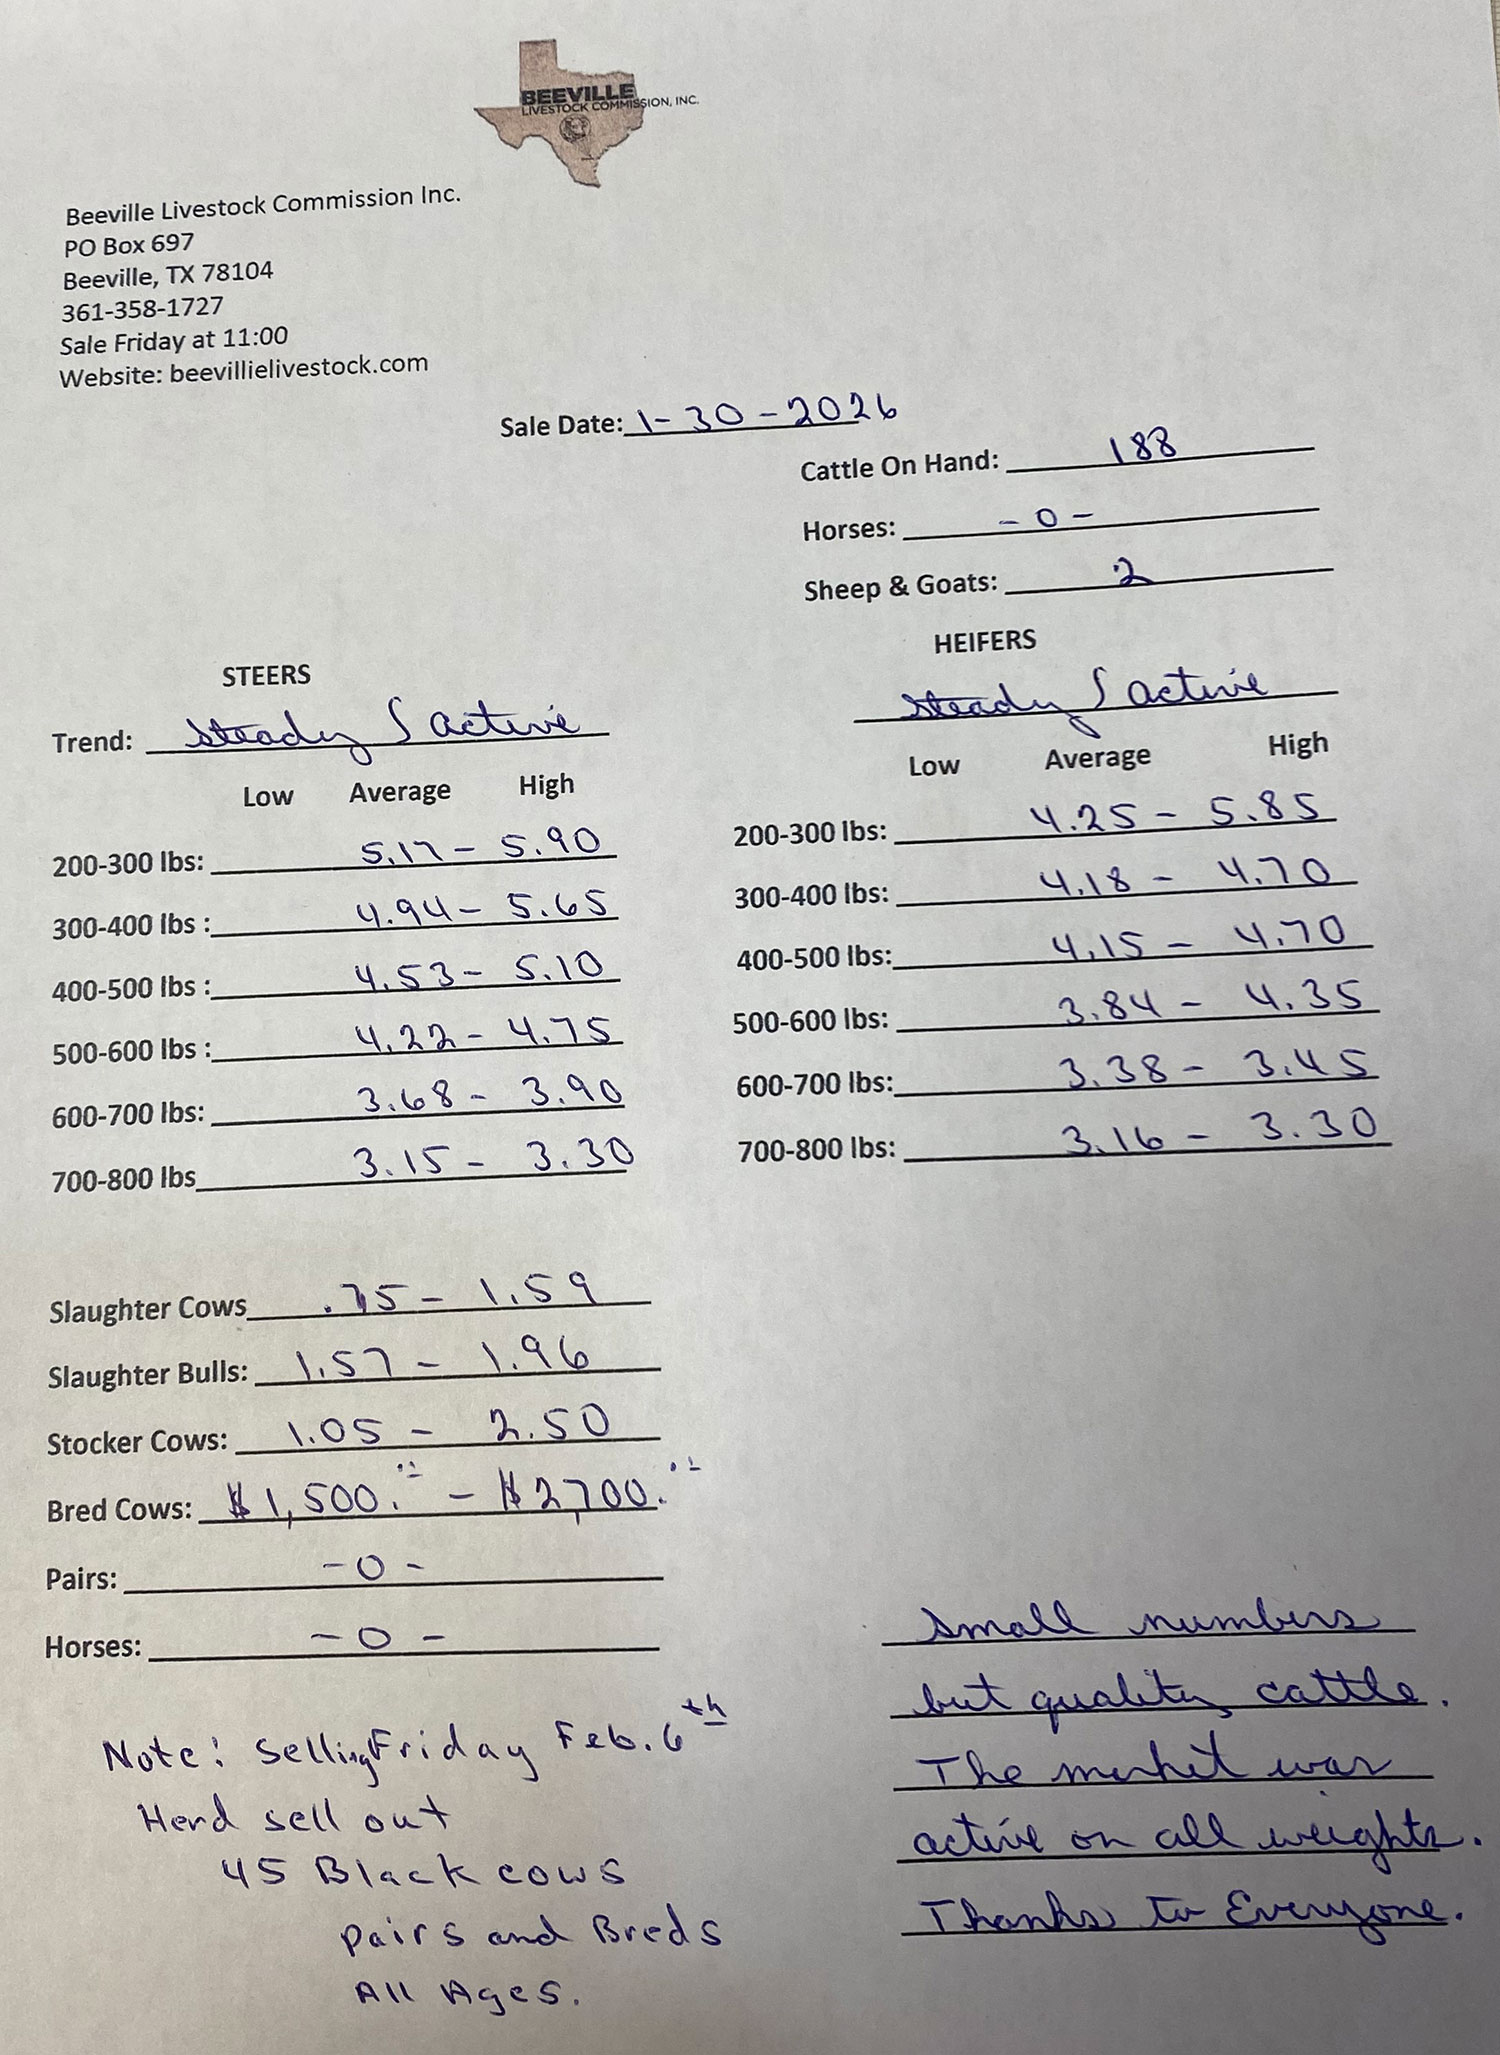 BEEVILLE
LIVESTOCK COMMISSION, INC.
Beeville Livestock Commission Inc.
PO Box 697
Beeville, TX 78104
361-358-1727
Sale Friday at 11:00
Website: beevillielivestock.com
Sale Date: 1-30-2026
Cattle On Hand: 188
Horses: -0-
Sheep & Goats: 2
STEERS
Trend: Steady / active
Low Average High
200-300 lbs: 5.17 - 5.90
300-400 lbs : 4.94 - 5.65
400-500 lbs : 4.53 - 5.10
500-600 lbs : 4.22 - 4.75
600-700 lbs: 3.68 - 3.90
700-800 lbs 3.15 - 3.30
HEIFERS
Steady / active
Low Average High
200-300 lbs: 4.25 - 5.85
300-400 lbs: 4.18 - 4.70
400-500 lbs: 4.15 - 4.70
500-600 lbs: 3.84 - 4.35
600-700 lbs: 3.38 - 3.45
700-800 lbs: 3.16 - 3.30
Slaughter Cows .75 - 1.59
Slaughter Bulls: 1.57 - 1.96
Stocker Cows: 1.05 - 2.50
Bred Cows: $1,500. - $2,700.
Pairs: -0-
Horses: -0-
Note: Selling Friday Feb. 6th
Herd sell out
45 Black cows
Pairs and Breds
All Ages.
Small numbers
but quality cattle.
The market was
active on all weights.
Thanks to Everyone.